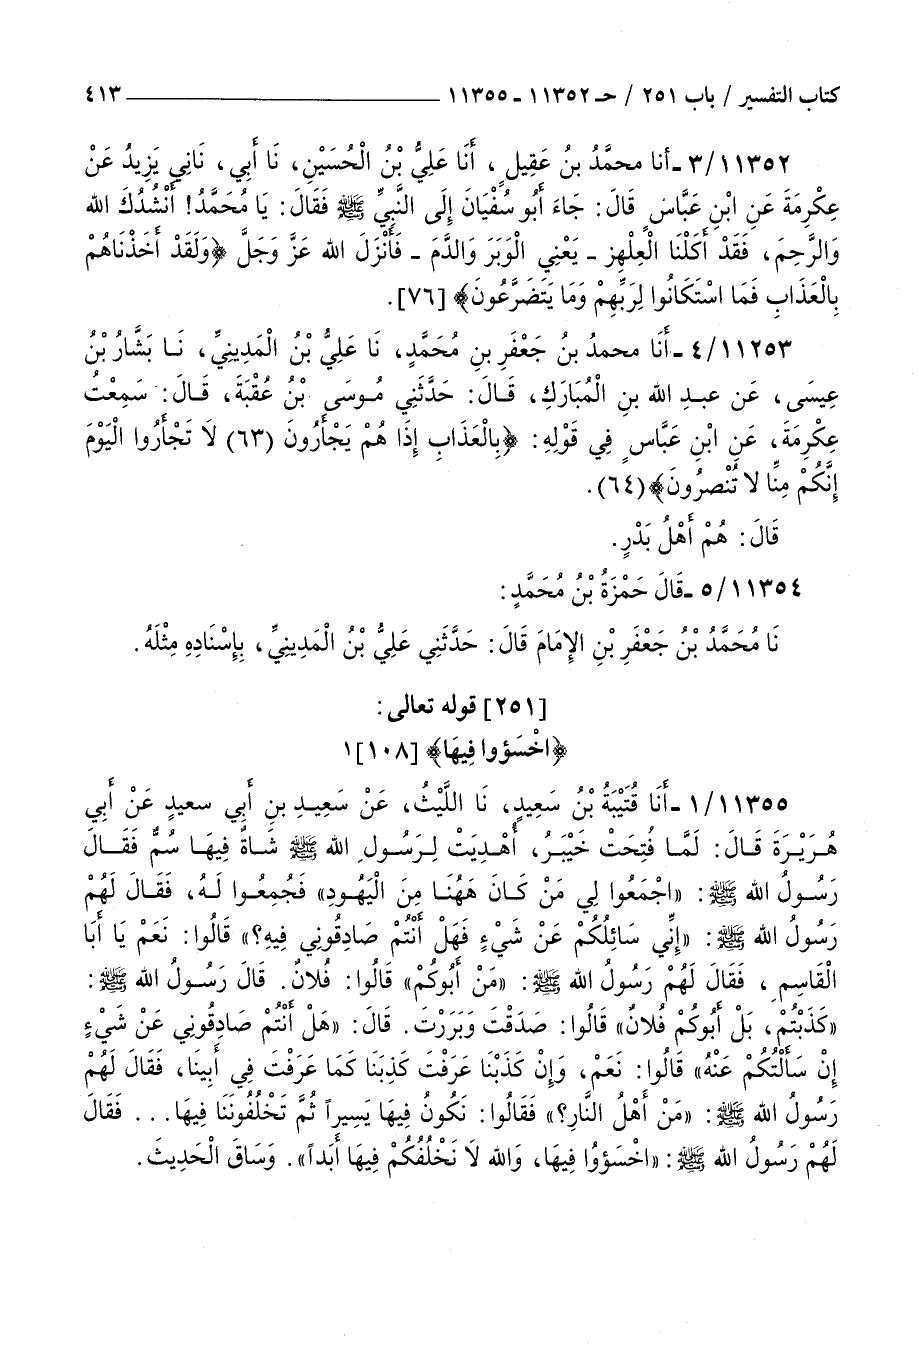 كتاب التفسير / باب ٢٥١ / حـ ١١٣٥٢ - ١١٣٥٥ ــــــــــــــــــــــــــــ ٤١٣
٣/١١٣٥٢ - أنا محمَّدُ بنُ عَقِيلٍ، أَنَا عَلِيُّ بْنُ الْحُسَيْنِ، نَا أَبِي، نَانِي يَزِيدُ عَنْ
عِكْرِمَةَ عَنِ ابْنِ عَبَّاسٍ قَالَ: جَاءَ أَبُو سُفْيَانَ إِلَى النَّبِيِّ ﷺ فَقَالَ: يَا مُحَمَّدُ! أَنْشُدُكَ الله
وَالرَّحِمَ، فَقَدْ أَكَلْنَا الْعِلْهِزَ - يَعْنِي الْوَبَرَ وَالدَّمَ - فَأَنْزَلَ الله عَزَّ وَجَلَّ ﴿وَلَقَدْ أَخَذْنَاهُمْ
بِالْعَذَابِ فَمَا اسْتَكَانُوا لِرَبِّهِمْ وَمَا يَتَضَرَّعُونَ﴾ [٧٦].
٤/١١٢٥٣ - أَنَا محمدُ بنُ جَعْفَرِ بنِ مُحَمَّدٍ، نَا عَلِيُّ بْنُ الْمَدِينِيِّ، نَـا بَشَّارُ بْنُ
عِيسَى، عَن عبـدِ الله بنِ الْمُبَارَكِ، قَـالَ: حَدَّثَنِي مُـوسَى بْنُ عُقْبَةَ، قَـالَ: سَمِعْتُ
عِكْرِمَةَ، عَنِ ابْنِ عَبَّاسٍ فِي قَوْلِهِ: ﴿بِالْعَذَابِ إِذَا هُمْ يَجْأَرُونَ (٦٣) لَا تَجْأَرُوا الْيَوْمَ
إِنَّكُمْ مِنَّا لا تُنْصرُونَ﴾(٦٤).
قَالَ: هُمْ أَهْلُ بَدْرٍ.
٥/١١٣٥٤ - قَالَ حَمْزَةُ بْنُ مُحَمَّدٍ:
نَا مُحَمَّدُ بْنُ جَعْفَرِ بْنِ الإِمَامَ قَالَ: حَدَّثَنِي عَلِيُّ بْنُ الْمَدِينِيِّ، بِإِسْنَادِهِ مِثْلَهُ.
[٢٥١] قوله تعالى:
﴿اخْسَؤوا فِيهَا﴾ [١٠٨]١
١/١١٣٥٥ - أَنَا قُتَيْبَةُ بْنُ سَعِيدٍ، نَا اللَّيْثُ، عَنْ سَعِيـدِ بنِ أَبِي سعيدٍ عَنْ أَبِي
هُـرَيْـرَةَ قَـالَ: لَمَّـا فُتِحَتْ خَيْبَـرُ، أُهْـدِيَتْ لِـرَسُـولِ الله ﷺ شَـاةٌ فِيهَـا سُمٌّ فَقَـالَ
رَسُـولُ الله ﷺ: «اجْمَعُوا لِي مَنْ كَـانَ هَهُنَـا مِنَ الْيَهُـودِ» فَجُمِعُـوا لَـهُ، فَقَـالَ لَهُمْ
رَسُولُ الله ﷺ: «إِنِّي سَائِلُكُمْ عَنْ شَيْءٍ فَهَلْ أَنْتُمْ صَادِقُونِي فِيهِ؟» قَالُوا: نَعَمْ يَا أَبَا
الْقَاسِمِ، فَقَالَ لَهُمْ رَسُولُ الله ﷺ: «مَنْ أَبُوكُمْ» قَالُوا: فُلانٌ. قَالَ رَسُـولُ الله ﷺ:
«كَذَبْتُمْ، بَلْ أَبُوكُمْ فُلانٌ» قَالُوا: صَدَقْتَ وَبَرَرْتَ. قَالَ: «هَلْ أَنْتُمْ صَادِقُونِي عَنْ شَيْءٍ
إِنْ سَأَلْتُكُمْ عَنْهُ» قَالُوا: نَعَمْ، وَإِنْ كَذَبْنَا عَرَفْتَ كَذِبَنَا كَمَا عَرَفْتَ فِي أَبِينَا، فَقَالَ لَهُمْ
رَسُولُ الله ﷺ: «مَنْ أَهْلُ النَّارِ؟» فَقَالُوا: نَكُونُ فِيهَا يَسِيراً ثُمَّ تَخْلُفُونَنَا فِيهَا... فَقَالَ
لَهُمْ رَسُولُ الله ﷺ: «اخْسَؤوُا فِيهَا، وَالله لَا نَخْلُفُكُمْ فِيهَا أَبَداً». وَسَاقَ الْحَدِيثَ.